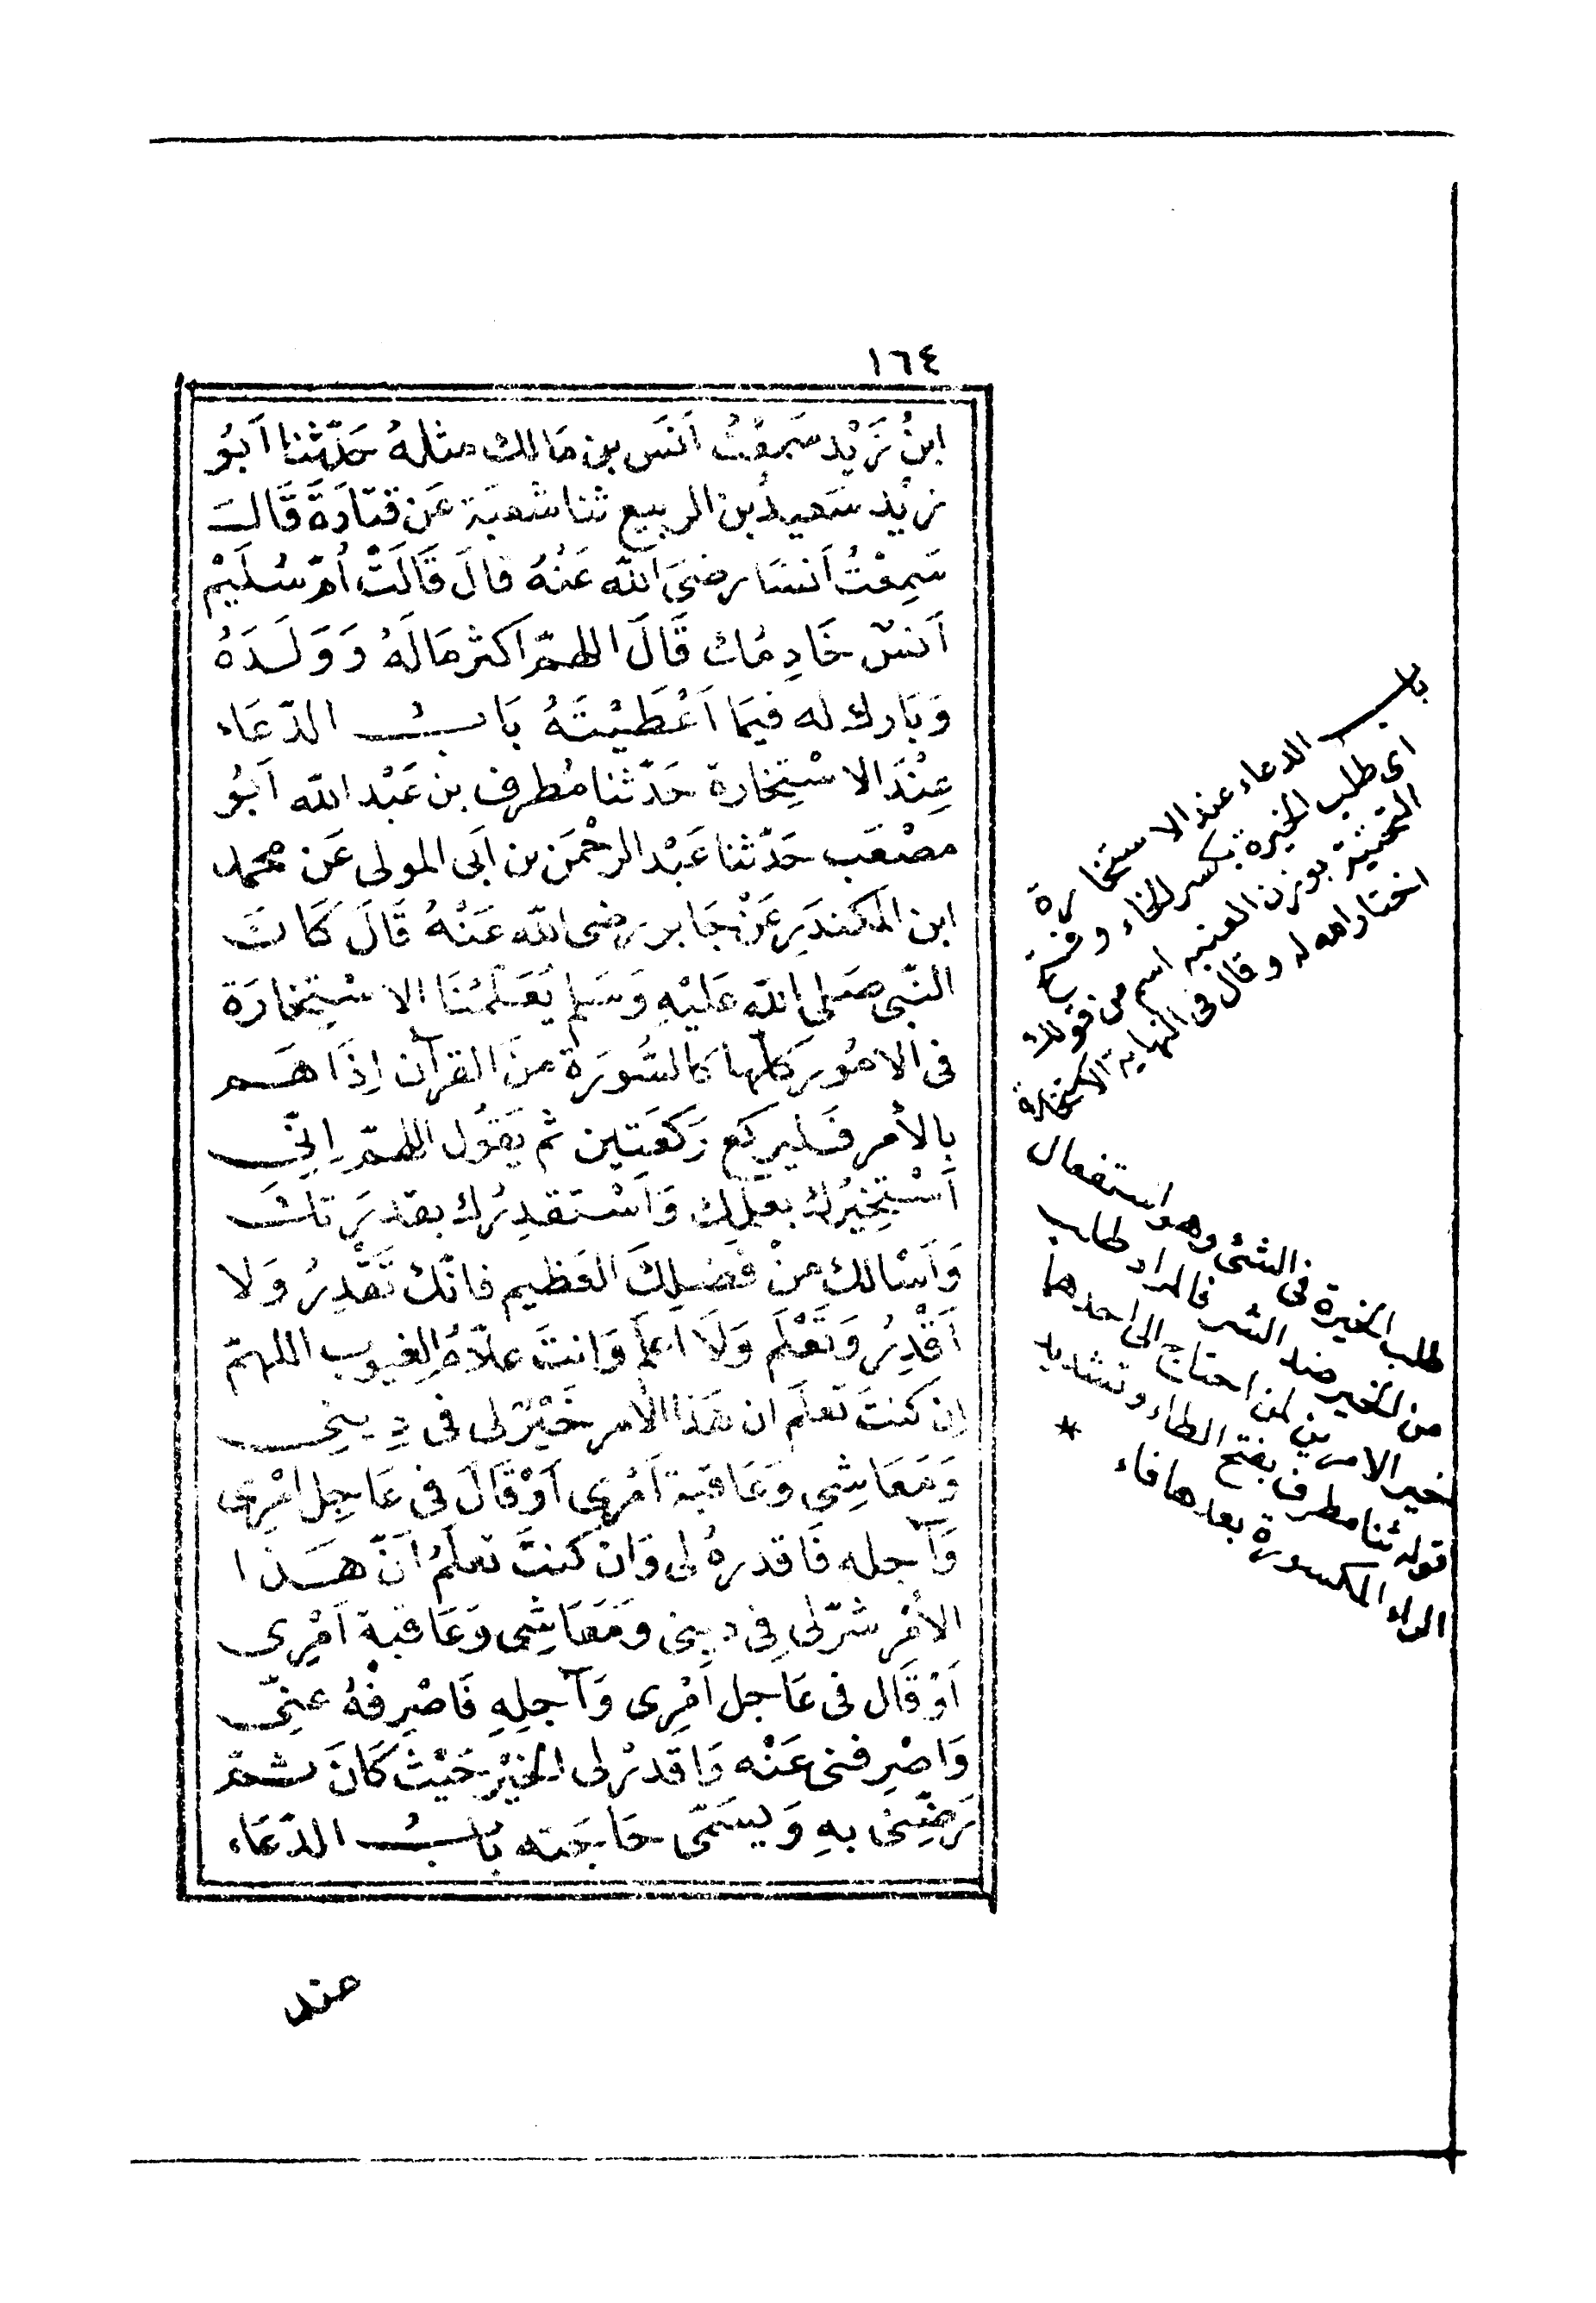 ١٦٤
ابنُ زَيْد سَمِعْتُ اَنَس بن مَالك مثلهُ حَدّثنا اَبُو
زيْد سَعيدُ بن الربيع ثنا شعبَة عَن قتَادَةَ قَالَ
سَمِعْتُ اَنسَا رضىَ اللّه عَنْهُ قالَ قَالَتْ اُمّ سُلَيْم
اَنسٌ خَادِمُك قَالَ اللهمّ اَكثر مَالَهُ وَوَلَدَهُ
وَبَارك له فيمَا اَعْطَيْتَهُ بَابُ الدّعَاء
عِنْدَ الاسْتِخارة حَدّثنا مُطرف بن عَبْد اللّه اَبُو
مصْعَب حَدّثنا عَبْد الرحْمَن بن اَبى المولى عَن محمد
ابن المنكدر عَنْ جَابر رضى اللّه عَنْهُ قَالَ كَانَ
النّبى صَلى اللّه عَليْهِ وَسَلم يُعَلّمُنَا الاسْتِخَارَة
فى الامُور كلّها كالسُّورَة منَ القرآن اِذَا هَم
بالأمر فَليركع رَكعَتين ثم يَقوُل اللهمّ اِنِّى
اَسْتَخِيْرُك بعلمك وَاَسْتَقدِرُك بقدرَتك
وَاَسْالك منْ فضلِكَ العَظيم فانّك تَقْدِرُ وَلا
اَقْدِرُ وَتَعْلَم وَلَا اَعلَم وَانتَ علاّمُ الغيوب اللهمّ
اِن كنتَ تَعلَم ان هَذا الأمر خَيْرٌ لى فى دِينى
وَمَعَاشِى وَعَاقبَة اَمْرِى اَوْقَالَ فى عَاجِل اَمْرِى
وَآجله فَاقدرهُ لى وَان كنتَ تعلَمُ اَنّ هَذا
الأمْر شرّ لى فِى دينى وَمَعَاشِى وَعَاقبَة اَمْرِى
اَوْ قَال فى عَاجل اَمْرِى وَآجلِهِ فَاصْرِفْهُ عنِّى
وَاصْرِفنى عَنْه وَاقدرْ لى الخيْر حَيْثُ كَانَ ثمّ
رَضِّنى بهِ وَيسَمّى حَاجَته بَابُ الدّعَاء
باب الدعاء عند الاستخارة
اى طلب الخيرة بكسر الخاء وفتح
التحتية بوزن العنبه اسم من قولك
اختار الله له وقال فى النهاية الاستخارة
طلب الخيرة فى الشئ وهو استفعال
من الخير ضد الشر فالمراد طلب
خير الامرين لمن احتاج الى احدهما
قوله ثنا مطرف بفتح الطاء وتشديد
الراء المكسورة بعدها فاء *
عند